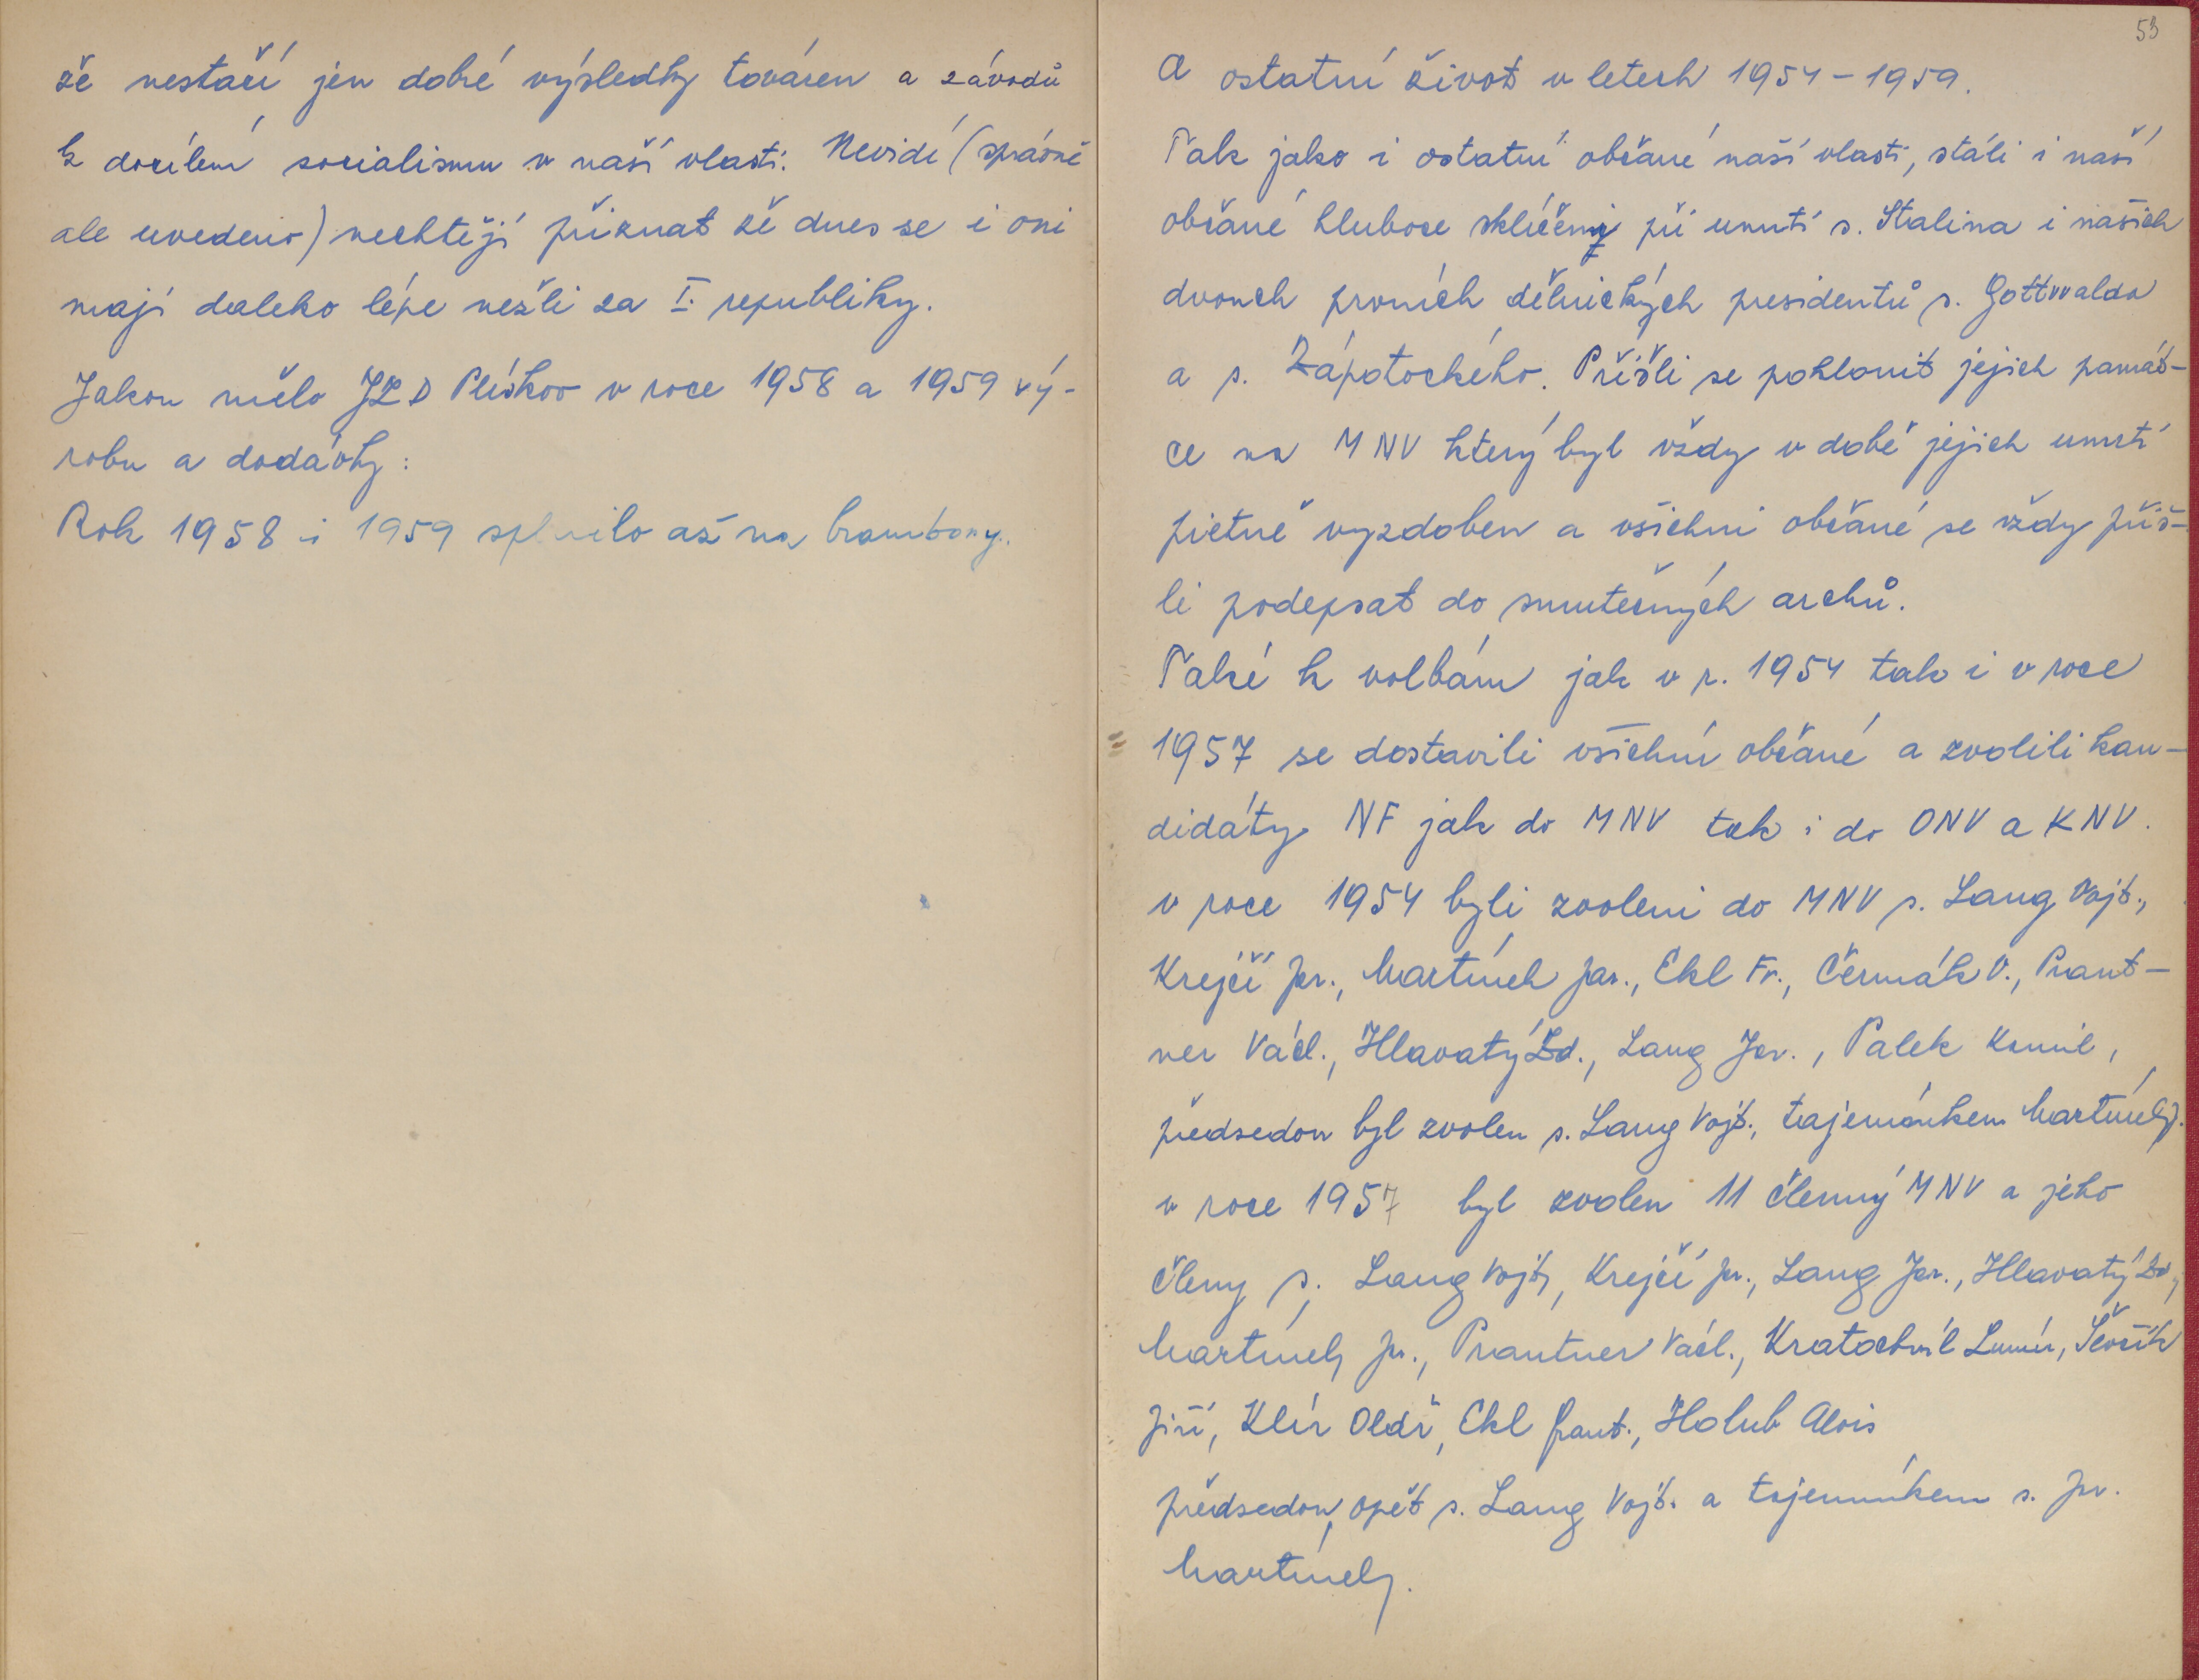 že nestačí jen dobré výsledky továren a závodů
k docílení socialismu v naší vlasti. Nevidí (správně
ale uvedeno) nechtějí přiznat že dnes se i oni
mají daleko lépe nežli za I. republiky.
Jakou mělo JZD Plískov v roce 1958 a 1959 vý-
robu a dodávky:
Rok 1958 i 1959 splnilo až na brambory.
53
A ostatní život v letech 1954-1959.
Tak jako i ostatní občané naší vlasti, stáli i naši
občané hluboce sklíčeni při úmrtí s. Stalina i našich
dvouch prvních dělnických presidentů s. Gottwalda
a s. Zápotockého. Přišli se poklonit jejich památ-
ce na MNV který byl vždy v době jejich umrtí
pietně vyzdoben a všichni občané se vždy přiš-
li podepsat do smutečných archů.
Také k volbám jak v r. 1954 tak i v roce
1957 se dostavili všichni občané a zvolili kan-
didáty NF jak do MNV tak i do ONV a KNV.
v roce 1954 byli zvoleni do MNV s. Lang Vojt.,
Krejčí Jar., Martínek Jar., Ekl Fr., Čermák V., Prant-
ner Václ., Hlavatý Zd., Lang Jar., Palek Kamil,
předsedou byl zvolen s. Lang Vojt., tajemníkem Martínek J.
v roce 1957 byl zvolen 11 členný MNV a jeho
členy s. Lang Vojt., Krejčí Jar., Lang Jar., Hlavatý Zd.,
Martínek Jar., Prantner Václ., Kratochvíl Lumír, Ševčík
Jiří, Klír Oldř, Ekl Frant., Holub Alois
předsedou opět s. Lang Vojt. a tajemníkem s. Jar.
Martínek.